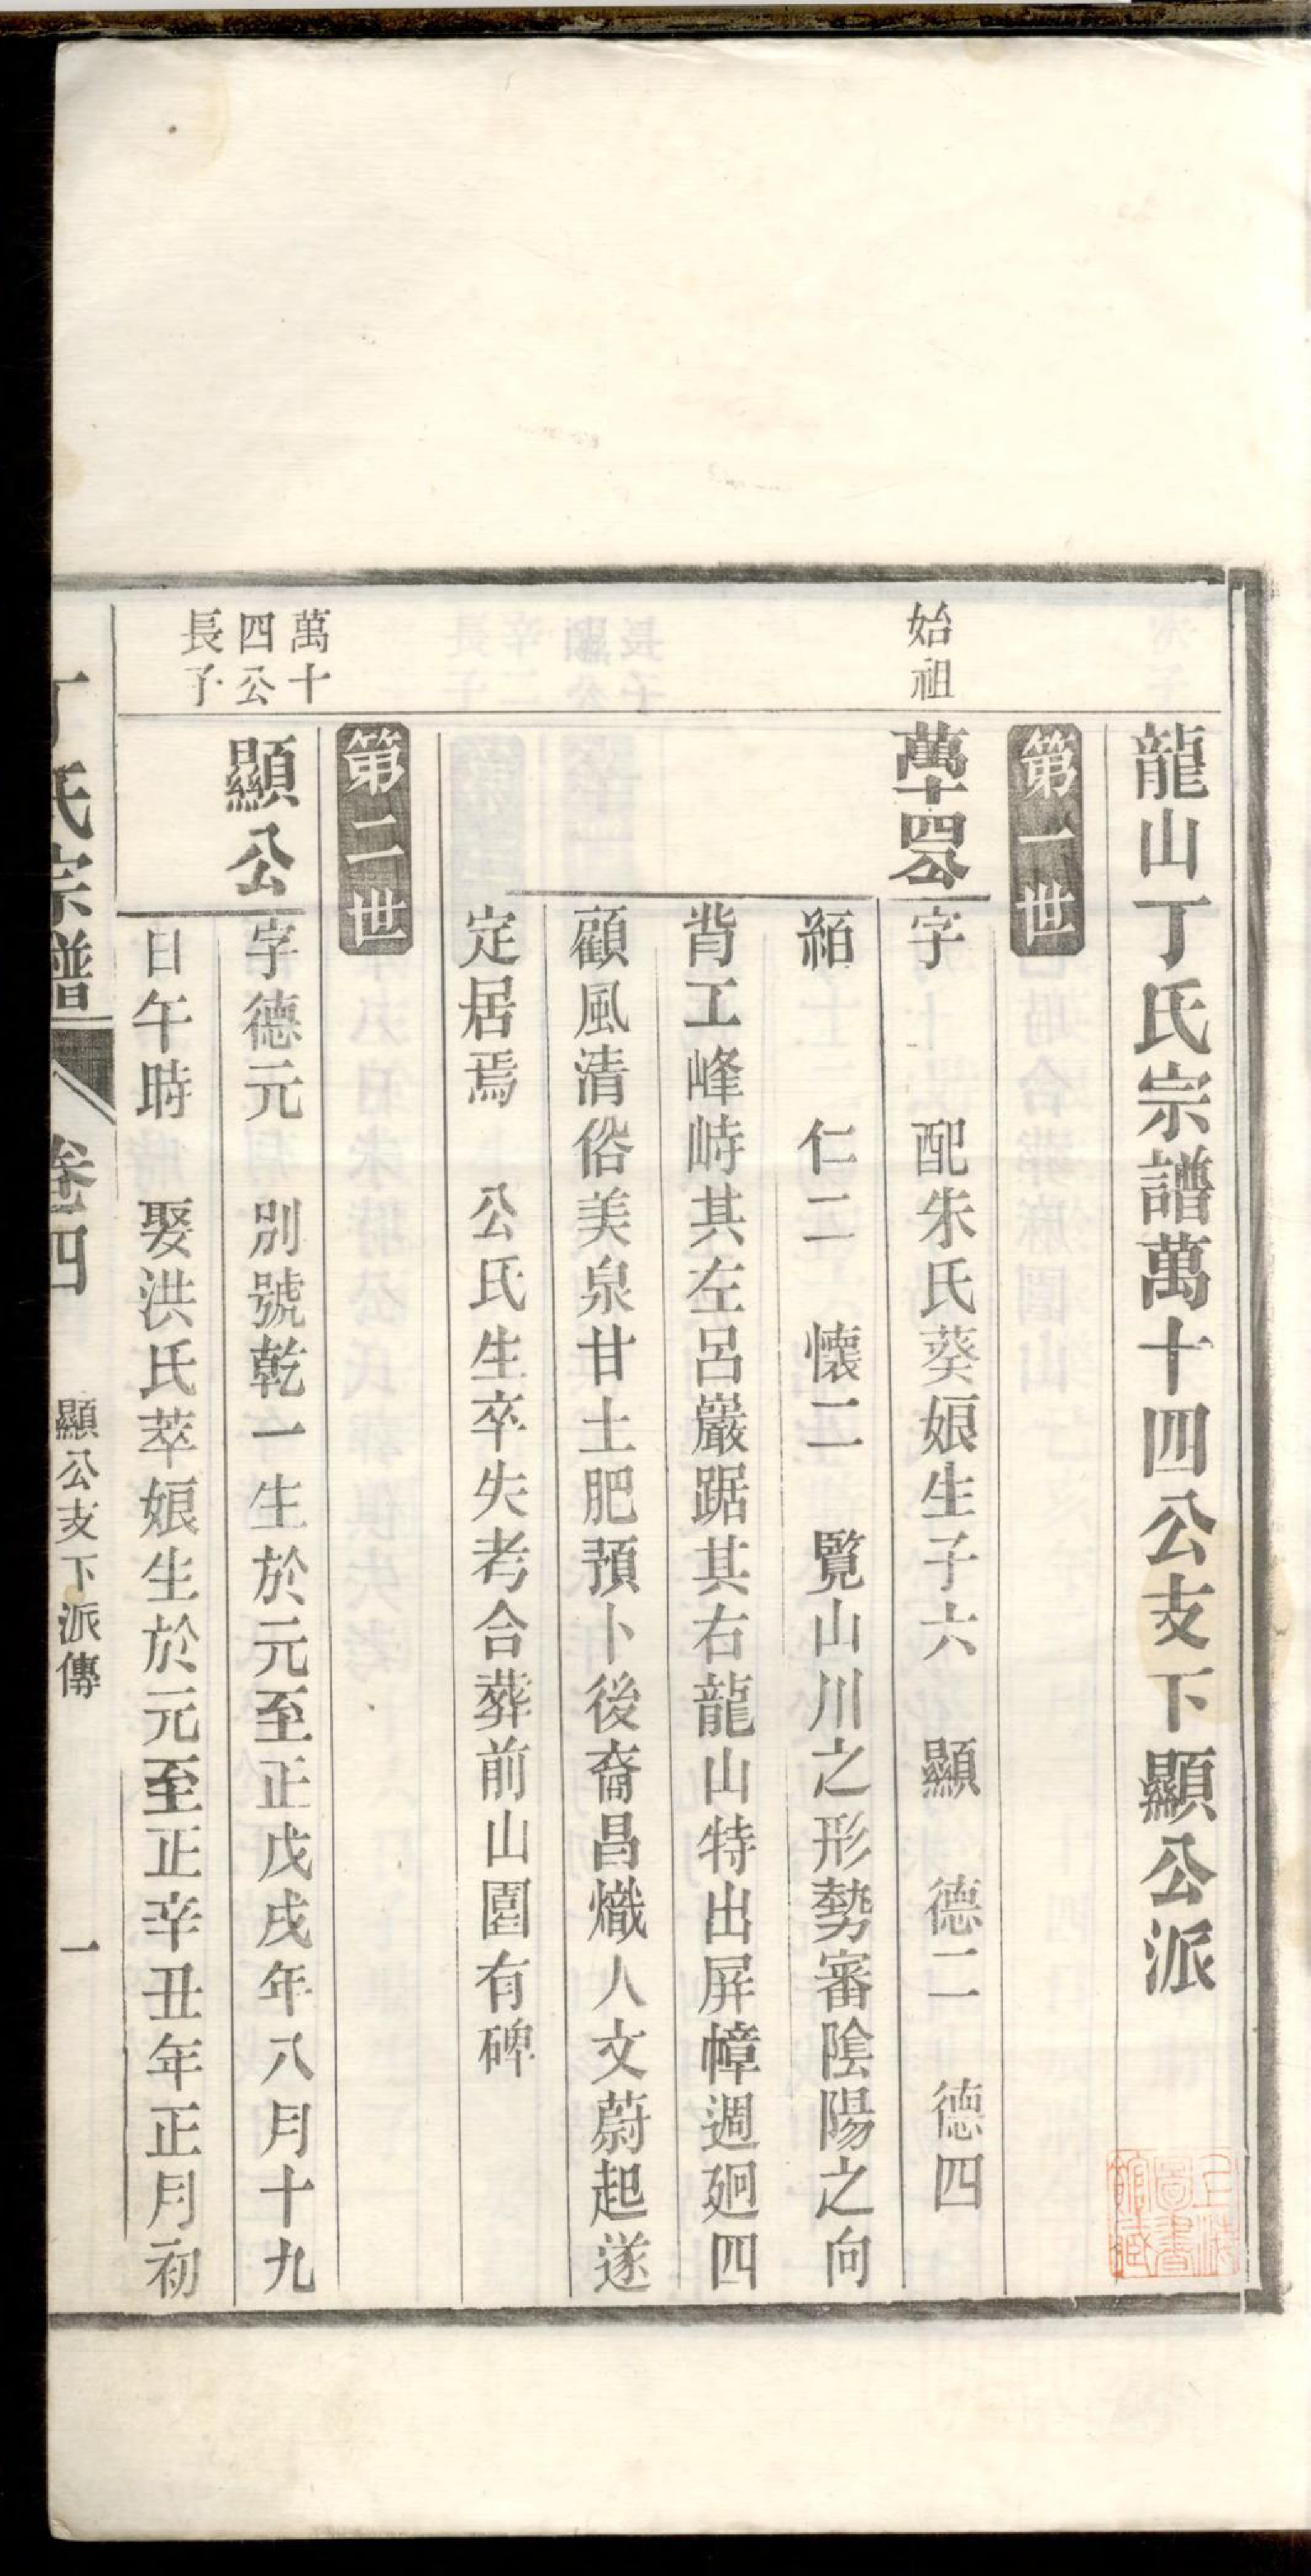 龍山丁氏宗譜萬十四公支下顯公派
第一世
始祖
萬十四公
字　配朱氏葵娘生子六　顯　德二　德四
　仁二　懷二　覽山川之形勢審陰陽之向
背工峰峙其左呂巖踞其右龍山特出屏幛週廻四
顧風清俗美泉甘土肥預卜後裔昌熾人文蔚起遂
定居焉　公氏生卒失考合葬前山園有碑
第二世
萬十
四公
長子
顯公
字德元　別號乾一生於元至正戊戌年八月十九
日午時　娶洪氏萃娘生於元至正辛丑年正月初
丁氏宗譜　卷四　顯公支下派傳　一
上海
圖書
館藏